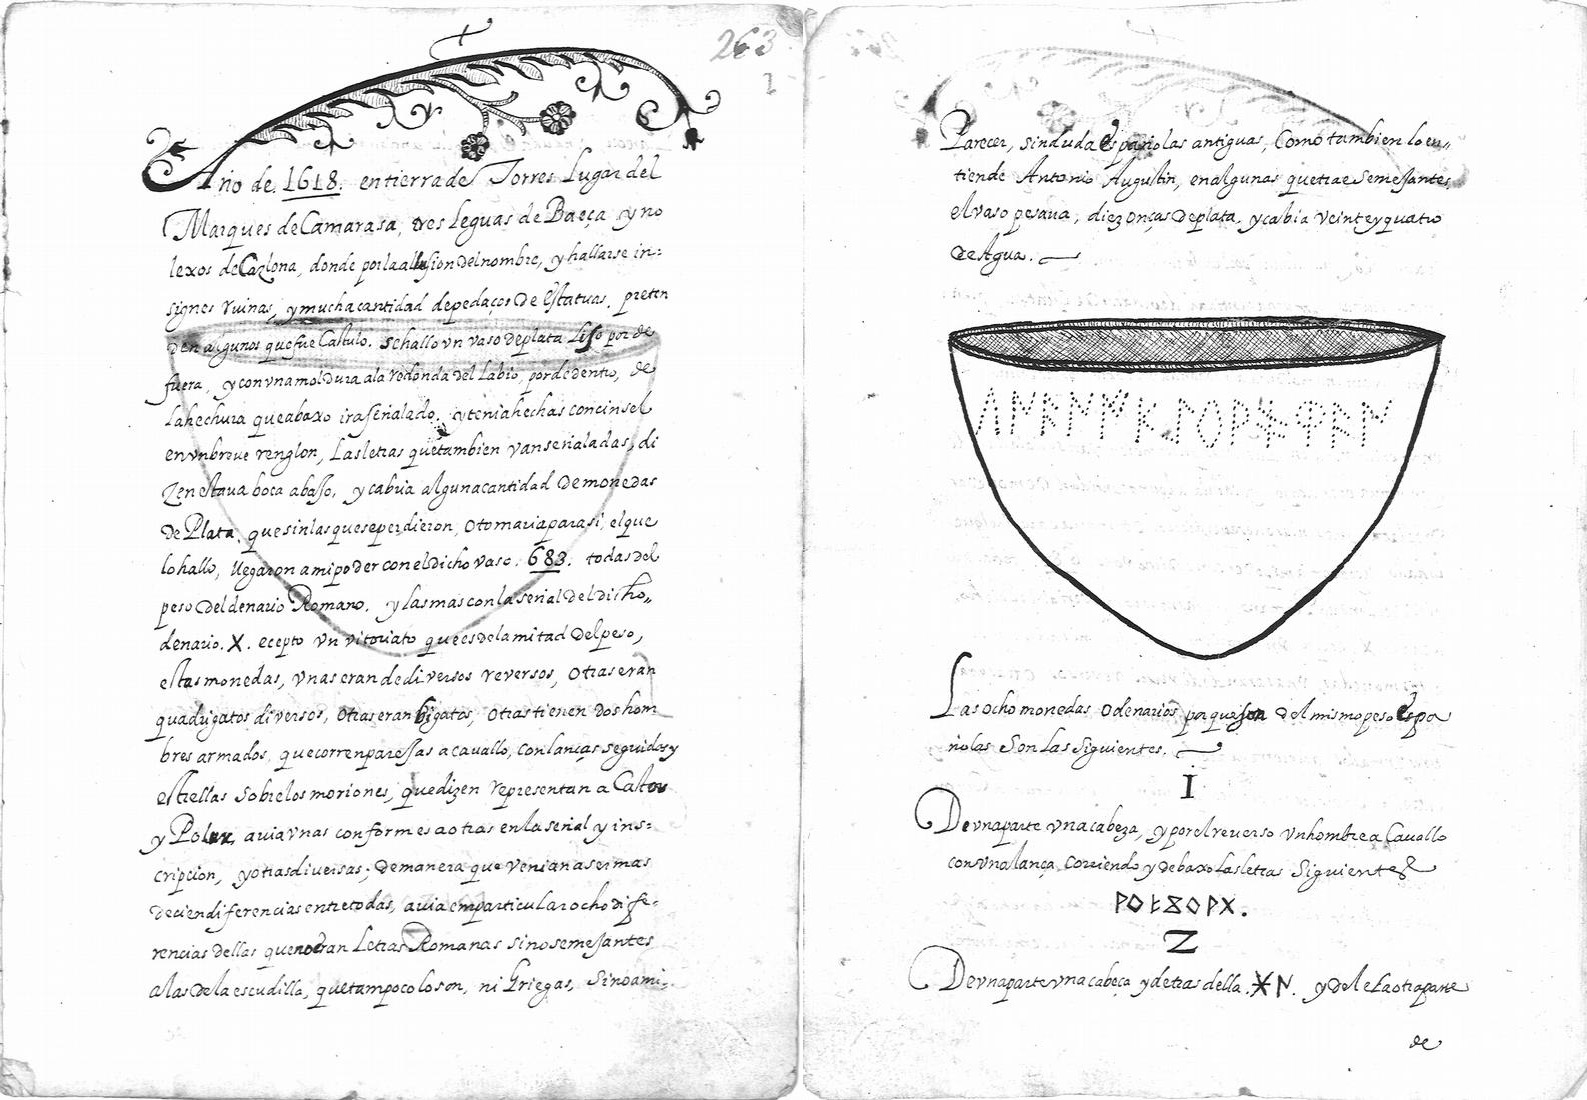 263
Año de. 1618. en tierra de Torres Lugar del
Marques de Camarasa, tres leguas de Baeça, y no
lexos de Cazlona, donde por la allusion del nombre, y hallarse in-
signes ruinas, y mucha cantidad de pedaços de Estatuas. preten
den algunos que fue Castulo. se hallo vn vaso de plata Liso por de
fuera, y con vna moldura a la redonda del Labio, por de dentro, de
la hechura que abaxo ira señalado. y tenia hechas con cinsel
en vn breue renglon, Las letras que tambien van señaladas, di
zen estaua boca abaJo, y cabia alguna cantidad de monedas
de Plata, que sin las que se perdieron, o tomaria para si, el que
lo hallo, llegaron a mi poder con el dicho vaso. 683. todas del
peso del denario Romano. y las mas con la señal del dicho
denario. X. ecepto vn vitoriato que es de la mitad del peso,
estas monedas, vnas eran de diversos reversos, otras eran
quadrigatos diversos, otras eran bigatos, otras tienen dos hom
bres armados, que corren pareJas a cavallo, con lanças seguidos y
estrellas sobre los moriones, que dizen representan a Castor
y Polux, avia vnas conformes a otras en la señal y ins-
cripcion, y otras diversas; de manera que venian a ser mas
de cien diferencias entre todas, avia em particular ocho dife-
rencias dellas que no eran Letras Romanas sino semeJantes
a las de la escudilla, que tampoco lo son, ni Griegas, Sino a mi-
Parecer, sin duda Españolas antiguas, Como tambien lo en-
tiende Antonio Augustin, en algunas que trae SemeJantes,
el vaso pesaua, diez onças de plata, y cabia veinte y quatro
de Agua.
Las ocho monedas o denarios por que son del mismo peso Espa
ñolas Son Las Siguientes.
I
De vna parte vna cabeza, y por el reverso vn hombre a Cavallo
con vna lança Corriendo y debaxo Las letras Siguientes
2
De vna parte vna cabeça y detras della. y de la otra parte
de